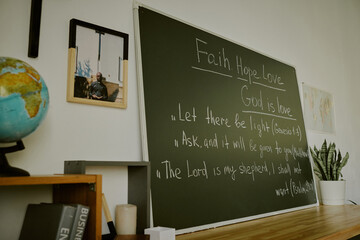 Faih Hope Love
God is love
„Let there be light (Genesis 1:3
„Ask, and it will be given to you (Matthew
„The Lord is my shepherd, I shall not
want (Psalm
BUSINESS